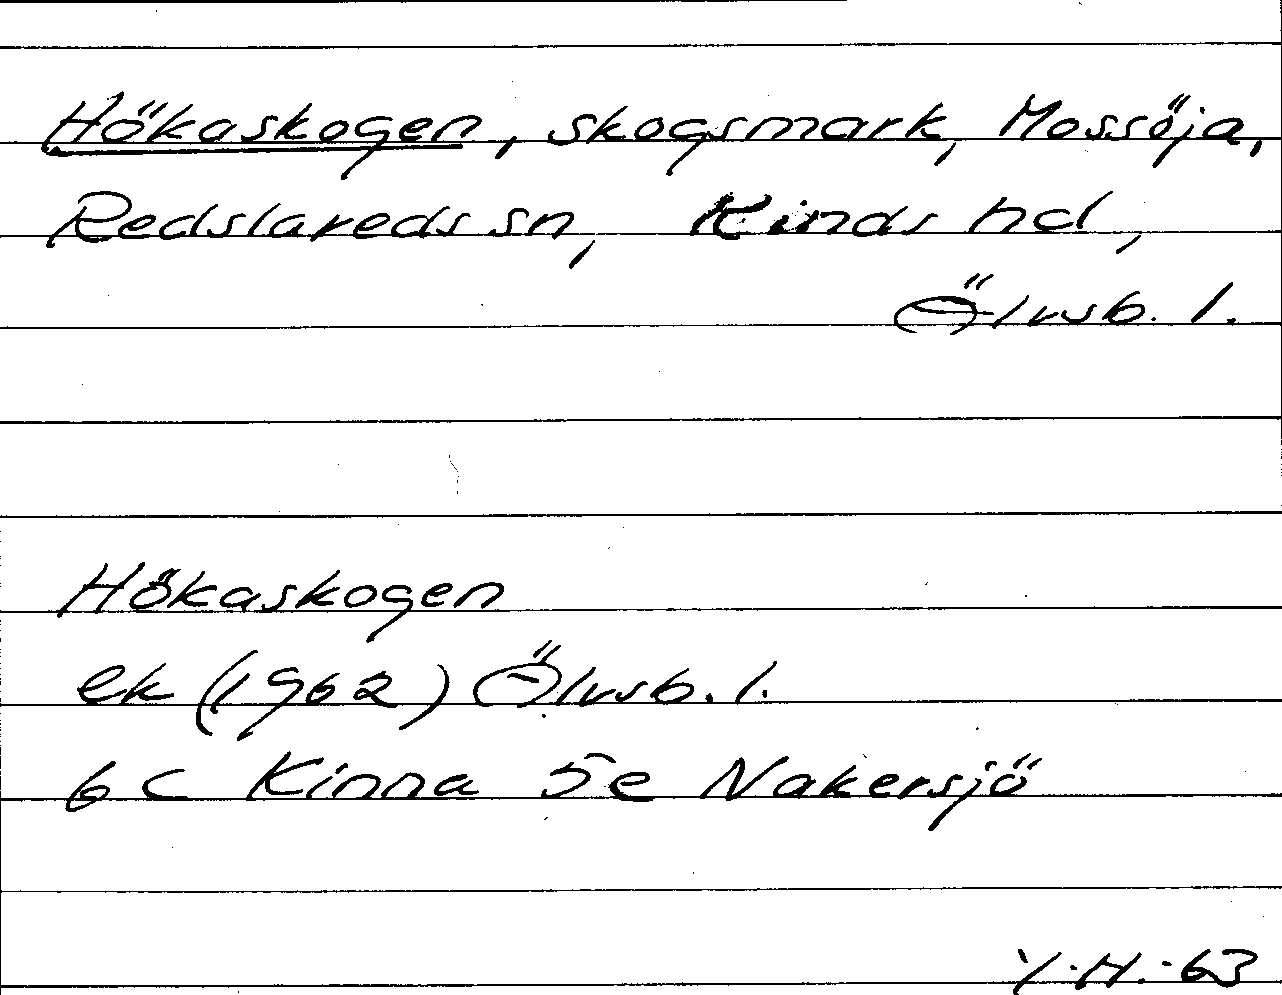 Hökaskogen, skogsmark, Mossöja,
Redslareds sn, Kinds hd,
Älvsb. l.
Hökaskogen
ek (1962) Älvsb. l.
6 C Kinna 5e Nakersjö
Y.H.-63